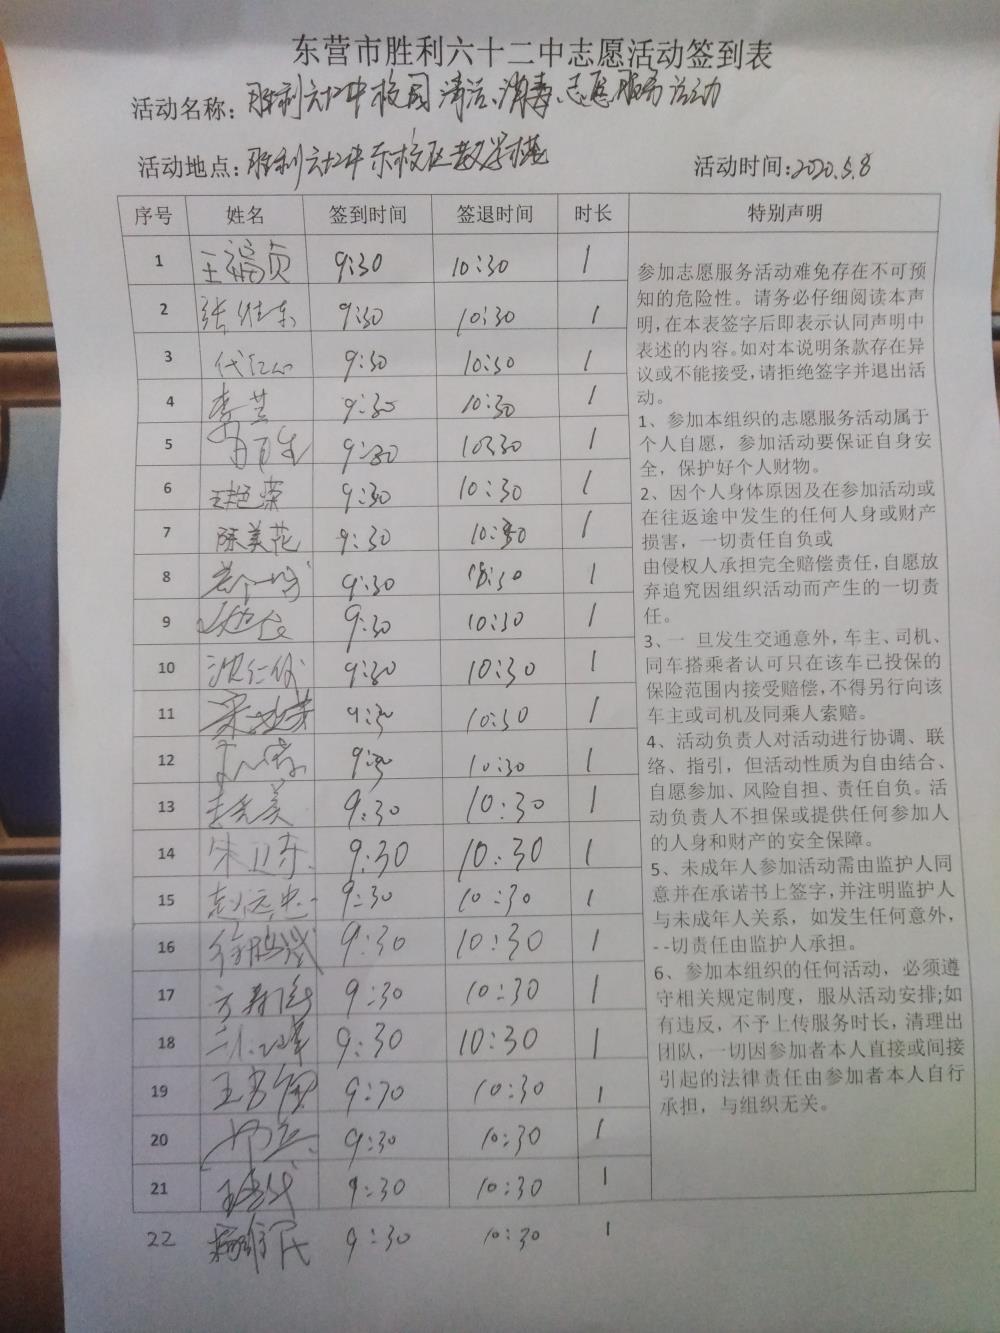 东营市胜利六十二中志愿活动签到表
活动名称:胜利六十二中校园清洁、消毒、志愿服务活动
活动地点:胜利六十二中东校区教学楼 活动时间:2020.5.8
序号 姓名 签到时间 签退时间 时长 特别声明
1 王福贞 9:30 10:30 1
2 9:30 10:30 1
3 9:30 10:30 1
4 9:30 10:30 1
5 9:30 10:30 1
6 9:30 10:30 1
7 陈美花 9:30 10:30 1
8 9:30 10:30 1
9 9:30 10:30 1
10 9:30 10:30 1
11 9:30 10:30 1
12 9:30 10:30 1
13 9:30 10:30 1
14 朱卫东 9:30 10:30 1
15 赵远忠 9:30 10:30 1
16 9:30 10:30 1
17 9:30 10:30 1
18 9:30 10:30 1
19 9:30 10:30 1
20 9:30 10:30 1
21 9:30 10:30 1
22 9:30 10:30 1
参加志愿服务活动难免存在不可预
知的危险性。请务必仔细阅读本声
明,在本表签字后即表示认同声明中
表述的内容。如对本说明条款存在异
议或不能接受,请拒绝签字并退出活
动。
1、参加本组织的志愿服务活动属于
个人自愿，参加活动要保证自身安
全，保护好个人财物。
2、因个人身体原因及在参加活动或
在往返途中发生的任何人身或财产
损害，一切责任自负或
由侵权人承担完全赔偿责任,自愿放
弃追究因组织活动而产生的一切责
任。
3、一 旦发生交通意外，车主、司机、
同车搭乘者认可只在该车已投保的
保险范围内接受赔偿,不得另行向该
车主或司机及同乘人索赔。
4、活动负责人对活动进行协调、联
络、指引，但活动性质为自由结合、
自愿参加、风险自担、责任自负。活
动负责人不担保或提供任何参加人
的人身和财产的安全保障。
5、未成年人参加活动需由监护人同
意并在承诺书上签字,并注明监护人
与未成年人关系，如发生任何意外，
--切责任由监护人承担。
6、参加本组织的任何活动，必须遵
守相关规定制度，服从活动安排;如
有违反，不予上传服务时长，清理出
团队，一切因参加者本人直接或间接
引起的法律责任由参加者本人自行
承担，与组织无关。